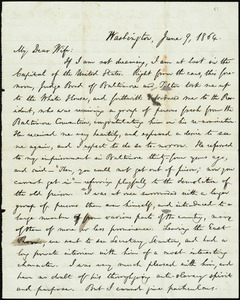 Washington, June 9, 1864.
My Dear Wife:
If I am not dreaming, I am at last in the
Capitol of the United States. Right from the cars, this fore-
noon, Judge Bond of Baltimore and Tilton took me up
to the White House, and forthwith introduced me to the Pres-
ident, who was receiving a group of persons fresh from the
Baltimore Convention, congratulating him on his nomination.
He received me very heartily, and expressed a desire to see
me again, and I expect to do so to-morrow. He referred
to my imprisonment in Baltimore thirty-four years ago,
and said—"Then, you could not get out of prison; now you
cannot get in"—referring playfully to the demolition of
the old prison. I was at once surrounded with a large
group of persons then and himself, and introduced to a
large number from various parts of the country, many
of them of more or less prominence. Leaving the East
Room, we went to see Secretary Stanton, and had a
long private interview with him of a most interesting
character. I was very much pleased with him, and
have no doubt of his thoroughgoing anti-slavery spirit
and purpose. But I cannot give particulars.